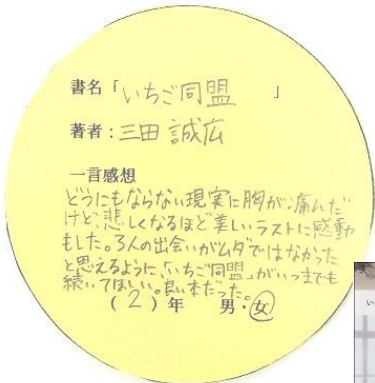 書名「いちご同盟　」
著者：三田 誠広
一言感想
どうにもならない現実に胸が痛んだ
けど、悲しくなるほど美しいラストに感動
もした。3人の出会いがムダではなかった
と思えるように、「いちご同盟」がいつまでも
続いてほしい。良い本だった。
（2）年　男・女
い